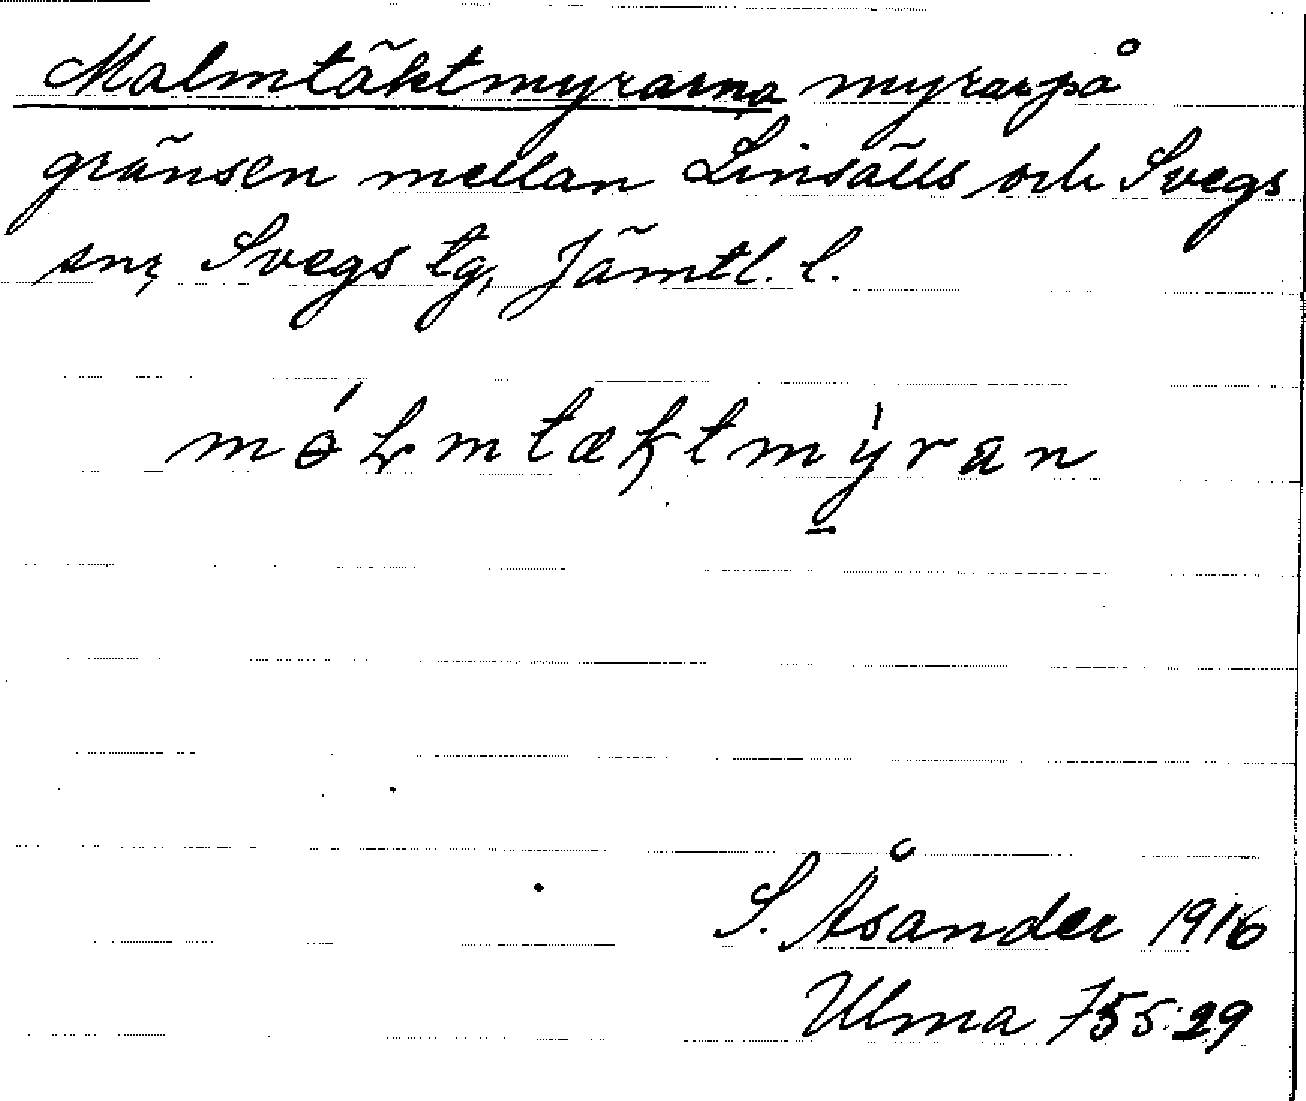 Malmtäktmyrarna myrar på
gränsen mellan Linsälls och Svegs
snr, Svegs tg, Jämtl. l.
mɵ́ḷmtæktmỳran
S. Åsander 1916
Ulma 755:29